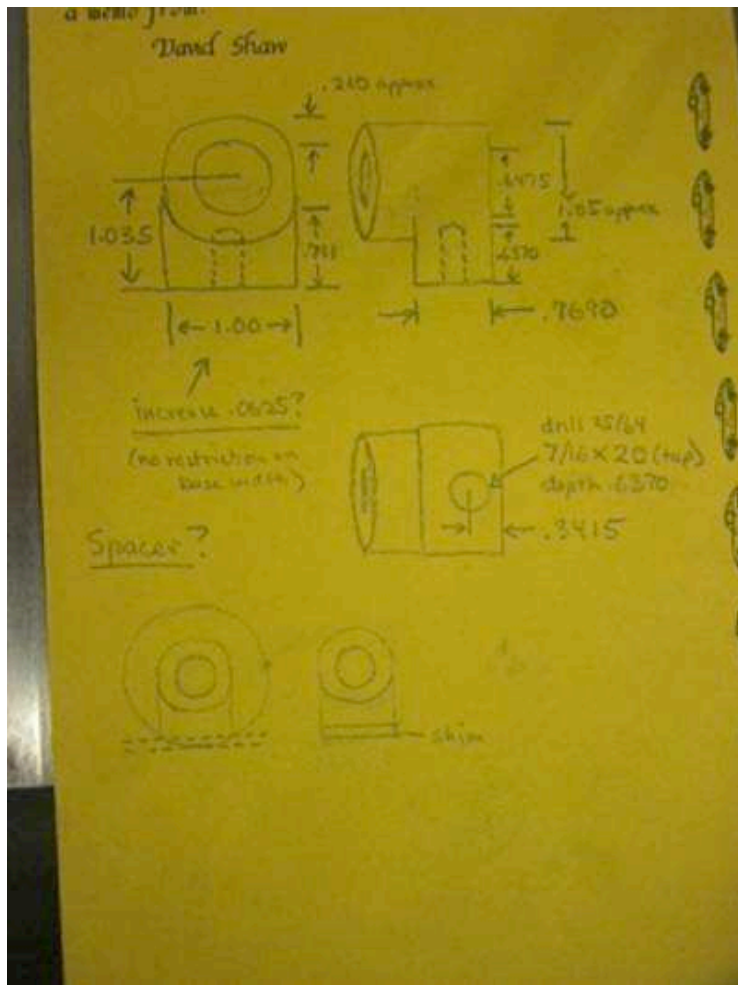 a memo from:
David Shaw
.210 approx
1.035
.6475
1.05 approx
1.00
.7690
increase .0625?
(no restriction on
base width)
drill 25/64
7/16 X 20 (tap)
depth .6370
.3415
Spacer?
shim